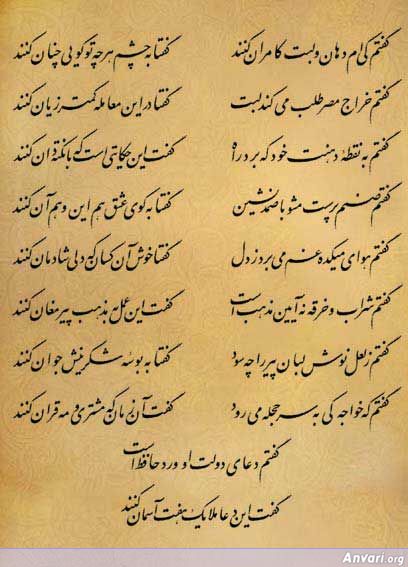 گفتم کی ام دهان و لبت کامران کنند گفتا به چشم هرچه تو گویی چنان کنند
گفتم خراج مصر طلب می کند لبت گفتا در این معامله کمتر زیان کنند
گفتم به نقطهٔ دهنت خود که برد راه گفت این حکایتی است که با نکته دان کنند
گفتم صنم پرست مشو با صمد نشین گفتا به کوی عشق هم این و هم آن کنند
گفتم هوای میکده غم می برد ز دل گفتا خوش آن کسان که دلی شادمان کنند
گفتم شراب و خرقه نه آیین مذهب است گفت این عمل به مذهب پیر مغان کنند
گفتم ز لعل نوش لبان پیر را چه سود گفتا به بوسه شکرینش جوان کنند
گفتم که خواجه کی به سر حجله می رود گفت آن زمان که مشتری و مه قران کنند
گفتم دعای دولت او ورد حافظ است
گفت این دعا ملایک هفت آسمان کنند
Anvari.org